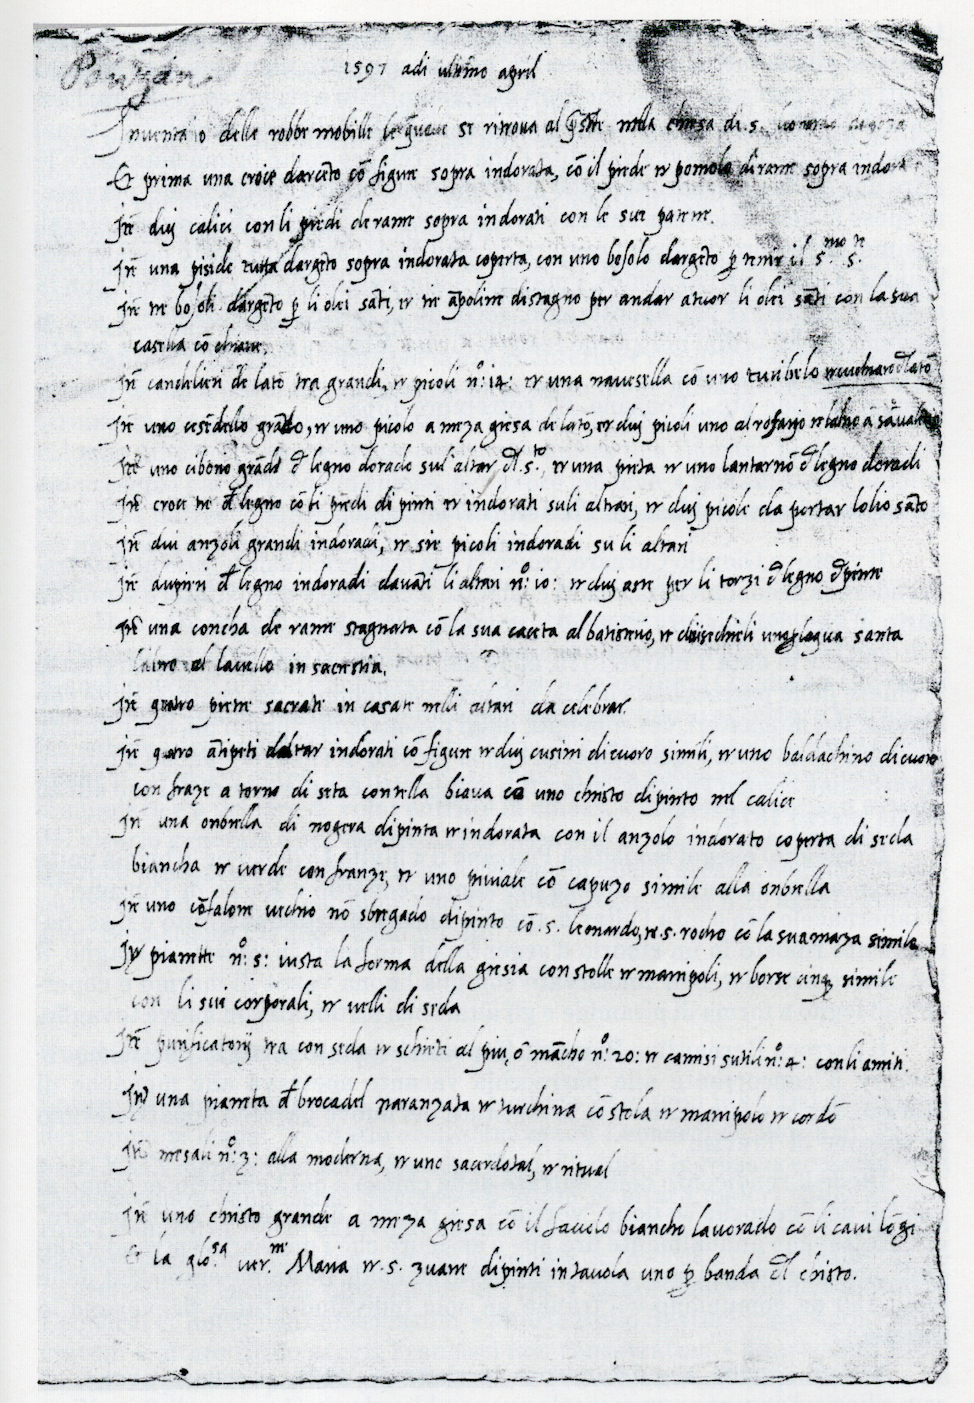 1597 adi ultimo april
Inventario delle robbe mobille le quale se ritrova al p̃ste nella chiesa di s.
Et prima una croce darcẽto cõ figure sopra indorata, cõ il piede et pomolo di rame sopra indora
Itẽ duj calici con li piedi de rame sopra indorati con le sue patene.
Itẽ una piside tutta dargẽto sopra indorata coperta, con uno bosolo dargẽto p̱ tenir il s.mo s.te
Itẽ tre bosoli dargẽto p̱ li olei sãti, et tre ãpoline di stagno per andar a tuor li olei sãti con la sua
casella cõ chiave.
Itẽ candelieri de latõ tra grandi, et picoli nº: 14: et una navesella cõ uno turibelo
Itẽ uno cesẽdello grãdo, et uno picolo a meza giesa de latõ, et duj picoli uno al rosario
Itẽ uno cibõrio grãdo d̃ legno dorado sul'altar dl̃ s.to, et una pinta et uno lantarnõ d̃ legno doradi
Itẽ croce tre d̃ legno cõ li piedi dipinti et indorati su li altari, et duj picole da portar lolio sãto
Itẽ dui anzoli grandi indoradi, et sie picoli indoradi su li altari
Itẽ dupieri d̃ legno indoradi davãti li altari nº: 10: et duj aste per li torzi d̃ legno d̃pente
Itẽ una concha de rame stagnata cõ la sua caceta al batisterio, et dui sechieli uno p̱ laqua santa
laltro al lavello in sacrestia.
Itẽ quatro pietre sacrate in casate nelli altari da celebrar.
Itẽ quatro ãtipeti daltar indorati cõ figure et duj cusini di cuoro simili, et uno baldachino di cuoro
con franze a torno di seta con tella biava cõ uno christo dipinto nel calice
Itẽ una onbrella di nogera dipinta et indorata con il anzolo indorato coperta di seda
biancha et verde con franze, et uno piviale cõ capuzo simile alla onbrella
Itẽ uno cõfalone vechio nõ sbregado dipinto cõ .s. leonardo, et .s. rocho cõ la sua maza simile
Itẽ pianette nº: 5: iusta la forma della giesia con stolle et manipoli, et borse cinq simile
con li sui corporali, et velli di seda
Itẽ purificatorij tra con seda et schieti al piu, õ mãcho nº: 20: et camisi sutili nº: 4: con li amiti.
Itẽ una pianeta d̃ brocadel naranzata et turchina cõ stola et manipolo et cordõ
Itẽ mesali nº: 3: alla moderna, et uno sacerdotal, et ritual
Itẽ uno christo grande a meza giesa cõ il favolo biancho lavorado cõ li cavi lõgi
Et la glo.sa ver.ne Maria et .s. zuane dipinti in tavola uno p̱ banda dl̃ christo.